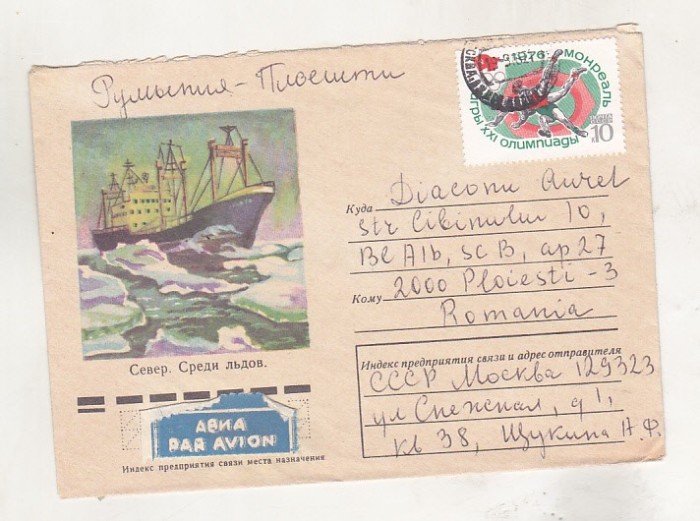 Румыния - Плоешти
1976 МОНРЕАЛЬ
ИГРЫ XXI ОЛИМПИАДЫ
10
Куда Diaconu Aurel
str Cibinului 10,
Bl A1b, sc B, ap 27
Кому 2000 Ploiesti - 3
Romania
Север. Среди льдов.
Индекс предприятия связи и адрес отправителя
СССР Москва 129323
ул Снежная, д 1,
кв 38, Щукина Н.Ф.
АВИА
PAR AVION
Индекс предприятия связи места назначения